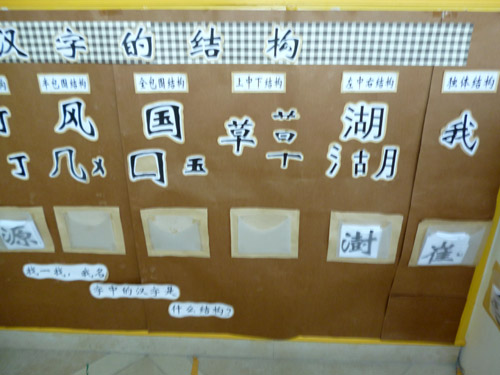 汉字的结构
半包围结构 全包围结构 上中下结构 左中右结构 独体结构
风 国 草 艹日十 湖 我
丁 几㐅 囗玉 氵古月
源 澍 崔
找一找，我名
字中的汉字是
什么结构？